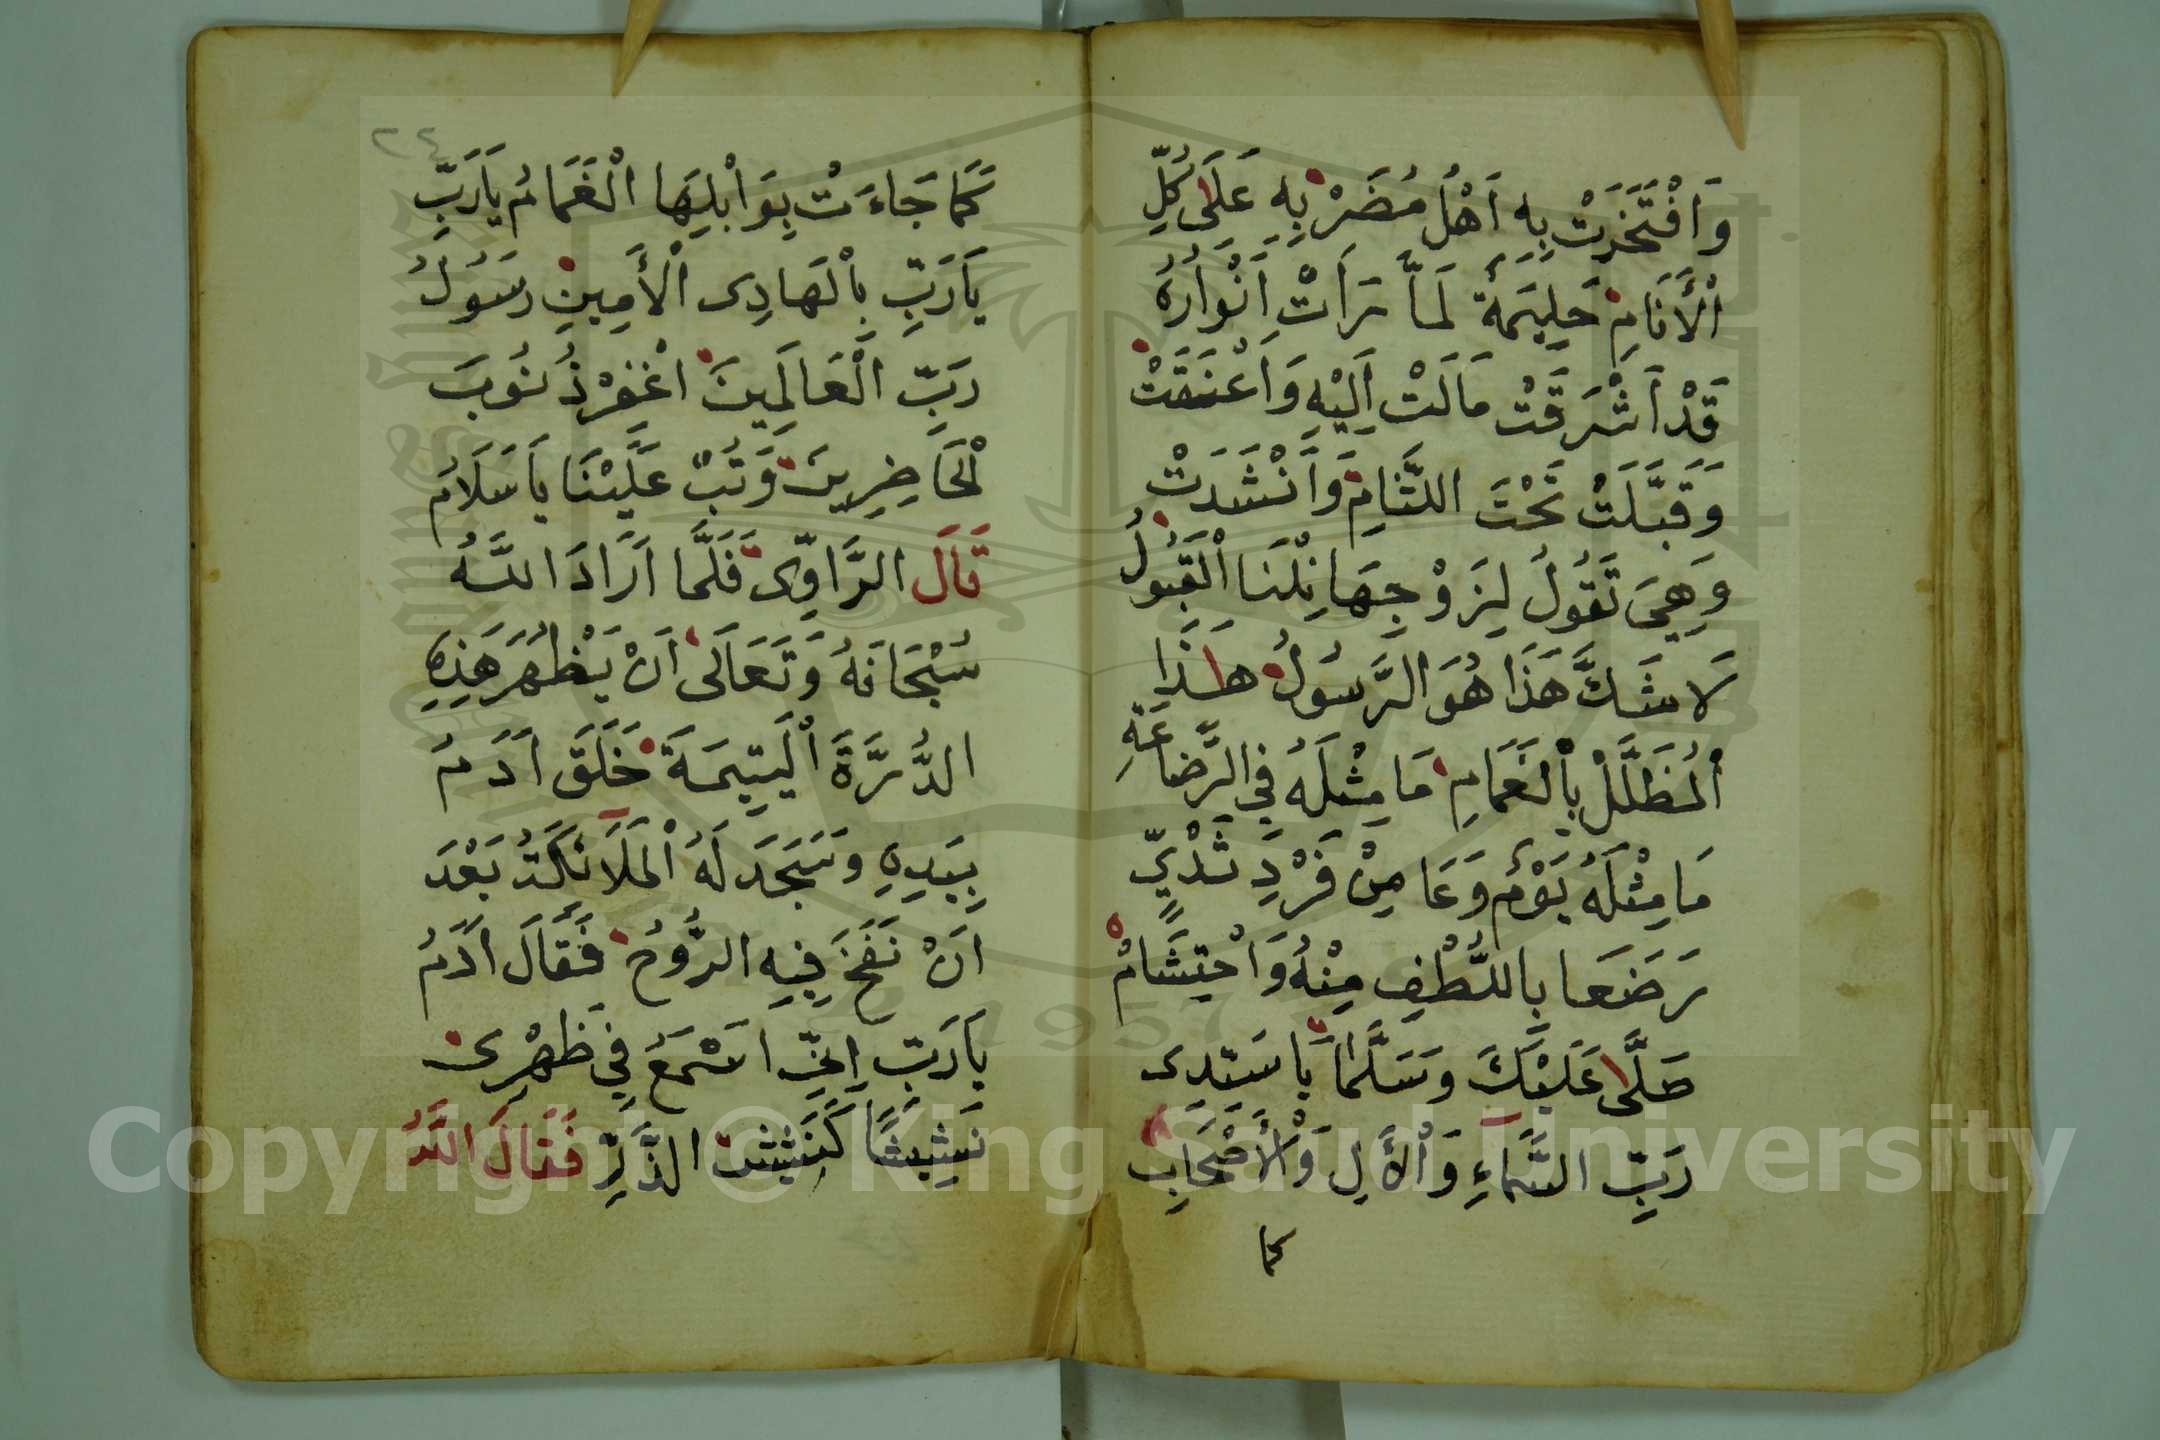 وَافْتَخَرَتْ بِهِ اَهْلُ مُضَرْ بِهِ عَلَى كُلِّ
اْلأَنَامِ حَلِيمَةْ لَمَّا رَاَتْ اَنْوَارُهُ
قَدْ اَشْرَقَتْ مَالَتْ اِلَيْهِ وَاَعْنَقَتْ
وَقَبَّلَتْ تَحْتَ اللثَامِ وَاَنْشَدَتْ
وَهِيَ تَقُولُ لِزَوْجِهَا نِلْنَا اْلقَبُولُ
لَاشَكَّ هَذَا هُوَ الرَّسُولُ هَذَا
اْلمُظَلَّلْ بِاْلغَمَامِ مَا مِثْلَهُ فِي الرَّضَاعَةِ
مَا مِثْلَهُ يَوْمٌ وَعَا مِنْ فَرْدِ ثَدْيٍّ
رَضَعَا بِاللُّطْفِ مِنْهُ وَاحْتِشَامْ
صَلَّى عَلَيْكَ وَسَلَّمَا يَا سَيِّدِى
رَبِّ السَّمَاءِ وَاْلأَلِ وَاْلأَصْحَابِ
كما
كَمَا جَاءَتْ بِوَابْلِيهَا الْغَمَامُ يَارَبِّ
يَارَبِّ بِاْلهَادِى اْلأَمِينِ رَسُولُ
رَبِّ الْعَالَمِينَ اغْفِرْ ذُنُوبَ
اْلحَاضِرِينَ وَتُبْ عَلَيْنَا يَاسَلَامُ
قَالَ الرَّاوِى فَلَمَّا اَرَادَ اللهُ
سُبْحَانَهُ وَتَعَالَى اَنْ يَظْهُرَ هَذِهِ
الدُّرَّةَ اْليَتِيمَةَ خَلَقَ اَدَمُ
بِيَدِهِ وَسَجَدَ لَهُ اْلمَلَائِكَتُ بَعْدَ
اَنْ نَفَخَ فِيهِ الرُّوحُ فَقَالَ اَدَمُ
يَارَبِّ اِنِّي اَسْمَعُ فِي ظَهْرِى
نَشِيشًا كَنَشِيشِ الذَّرِّ فَقَالَ اللهُ